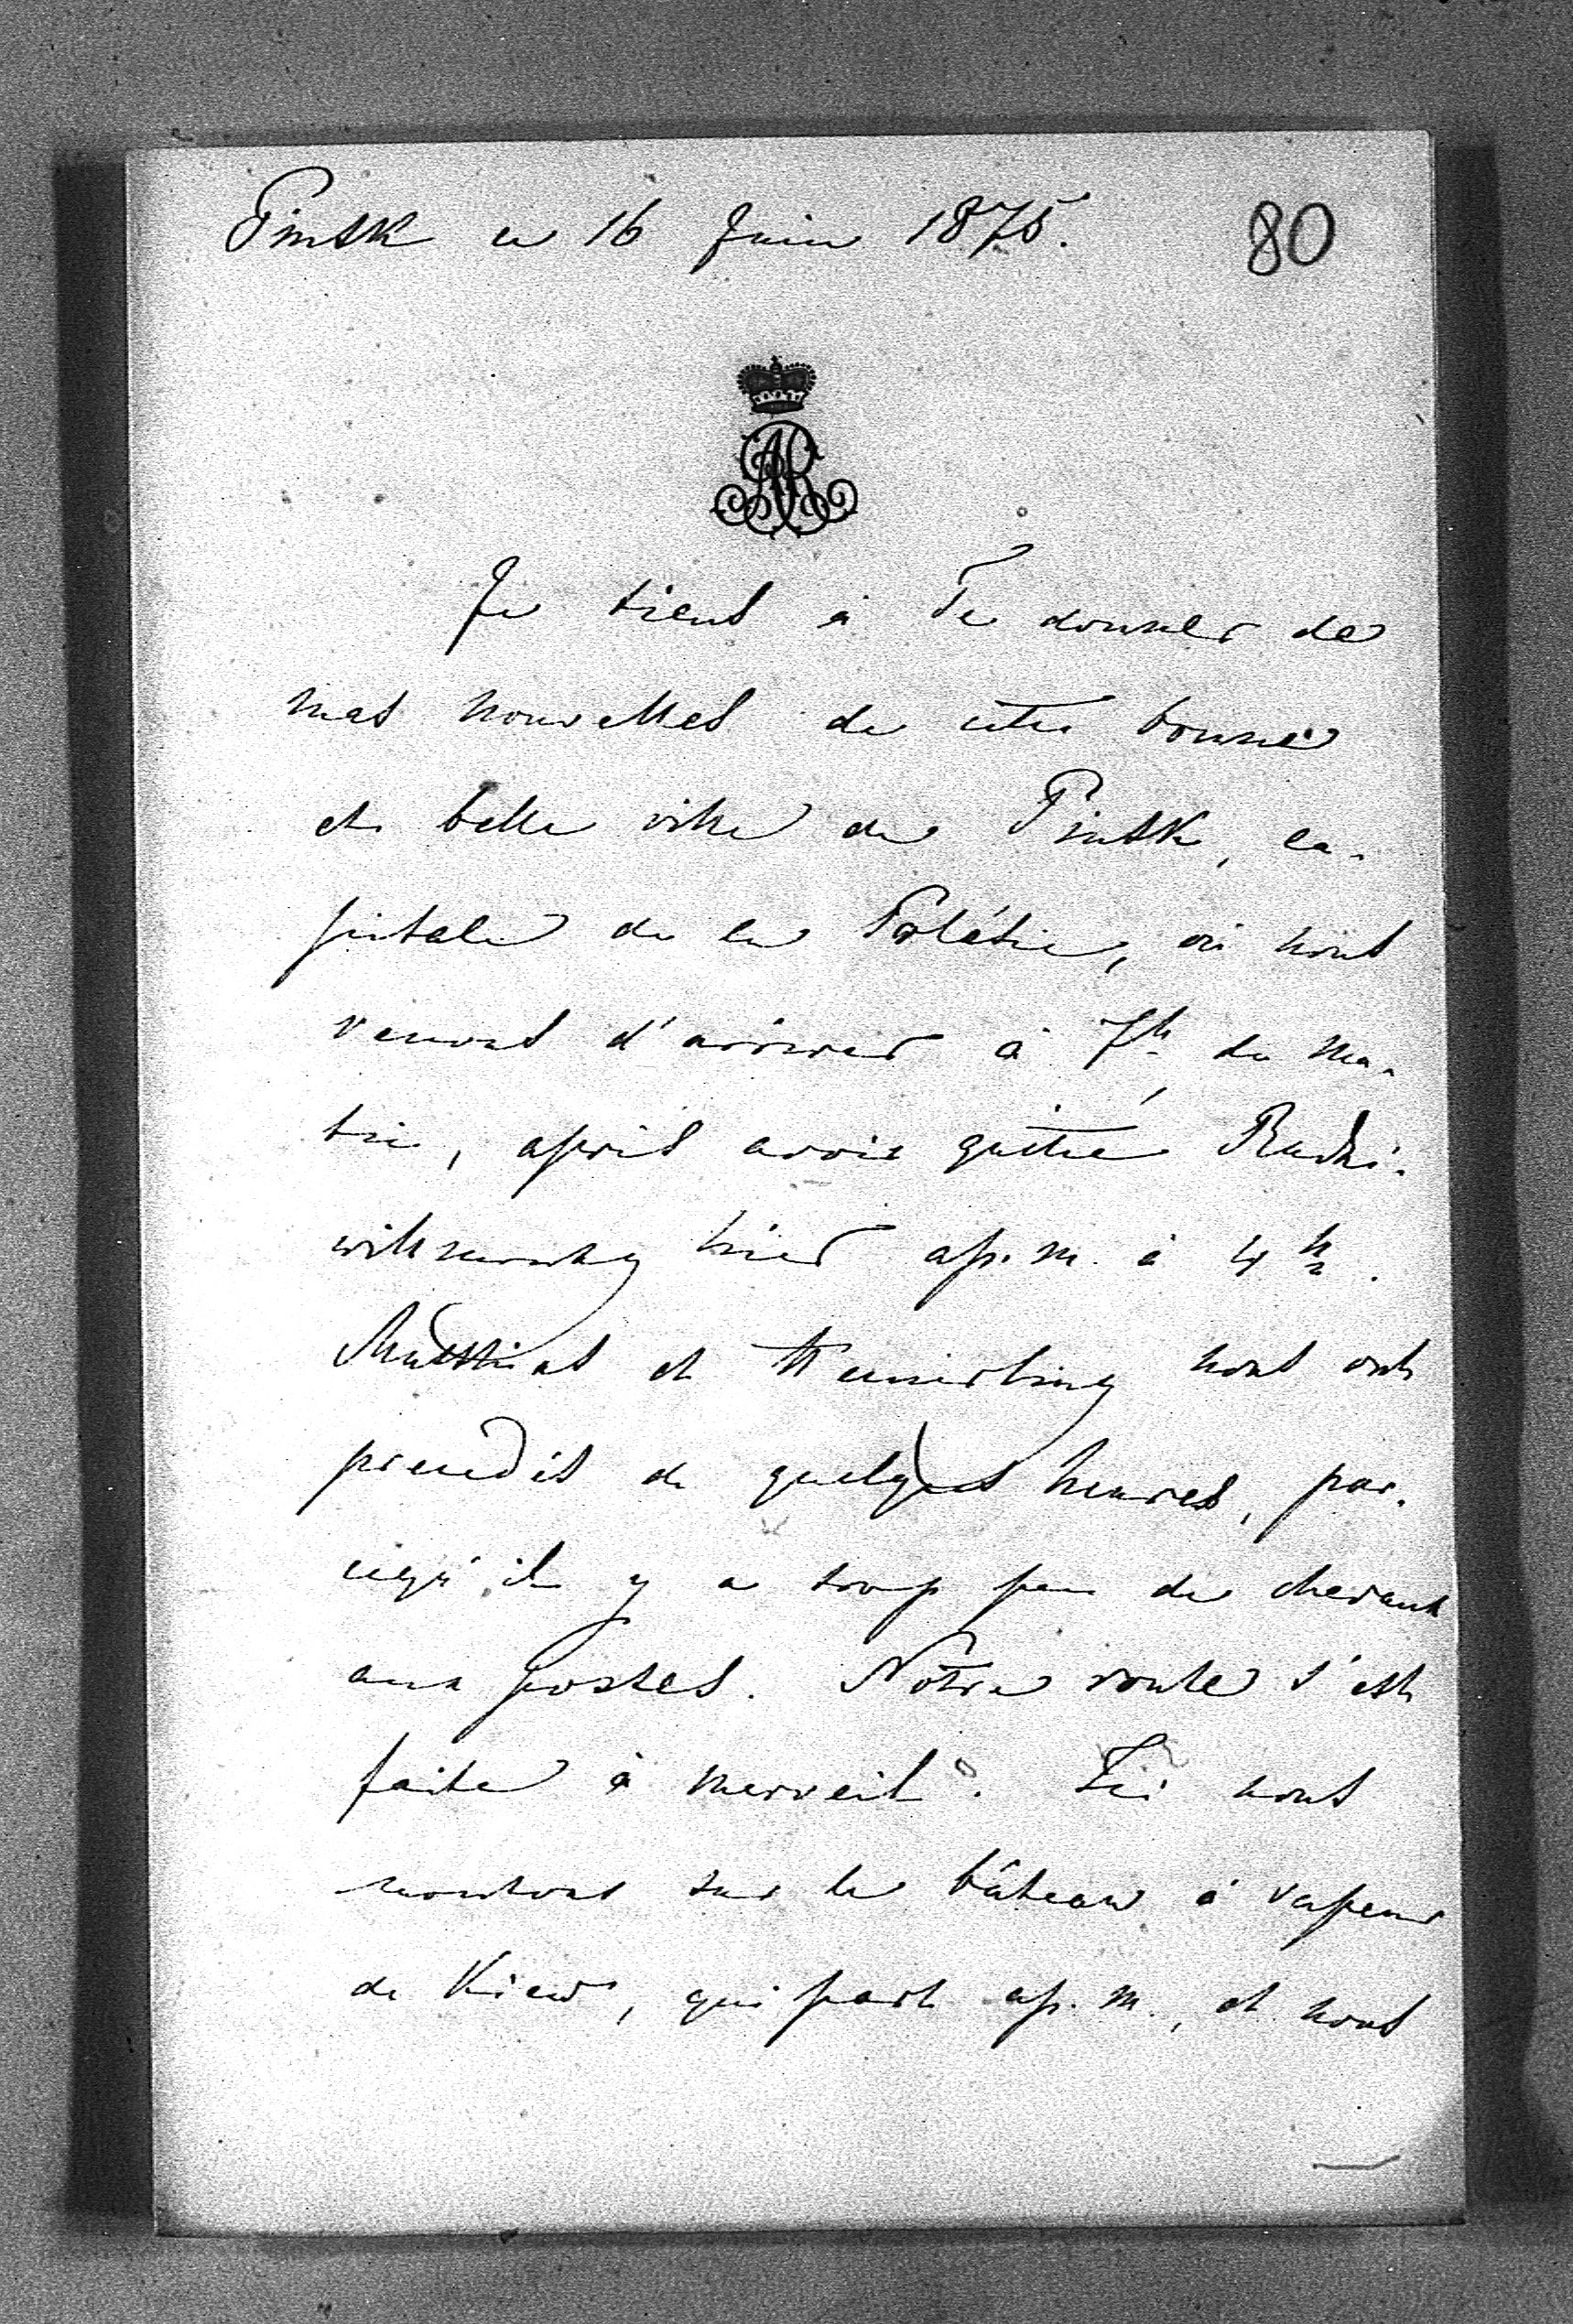 Pinsk ce 16 Juin 1875. 80
AR
Je tiens à Te donner de
mes nouvelles de cette bonne
et belle ville de Pinsk, ca-
pitale de la Polésie, où nous
venons d'arriver à 7h. du ma-
tin, après avoir quitté Radzi-
willmonty hier ap. m. à 4h.
et nous ont
précédés de quelques heures, par-
cequ'il y a trop peu de chevaux
aux postes. Nôtre route s'est
faite à merveil. Ici nous
montons sur le bâteau à vapeur
de Kiew, qui part ap. m., et nous